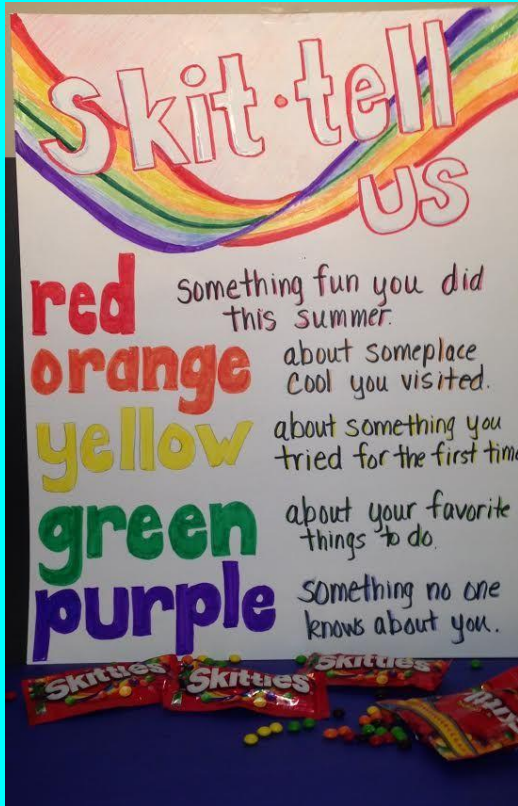 Skit·tell
us
red something fun you did
this summer.
orange about someplace
cool you visited.
yellow about something you
tried for the first time
green about your favorite
things to do.
purple something no one
knows about you.
Skittles
Skittles
Skittles
Skittles